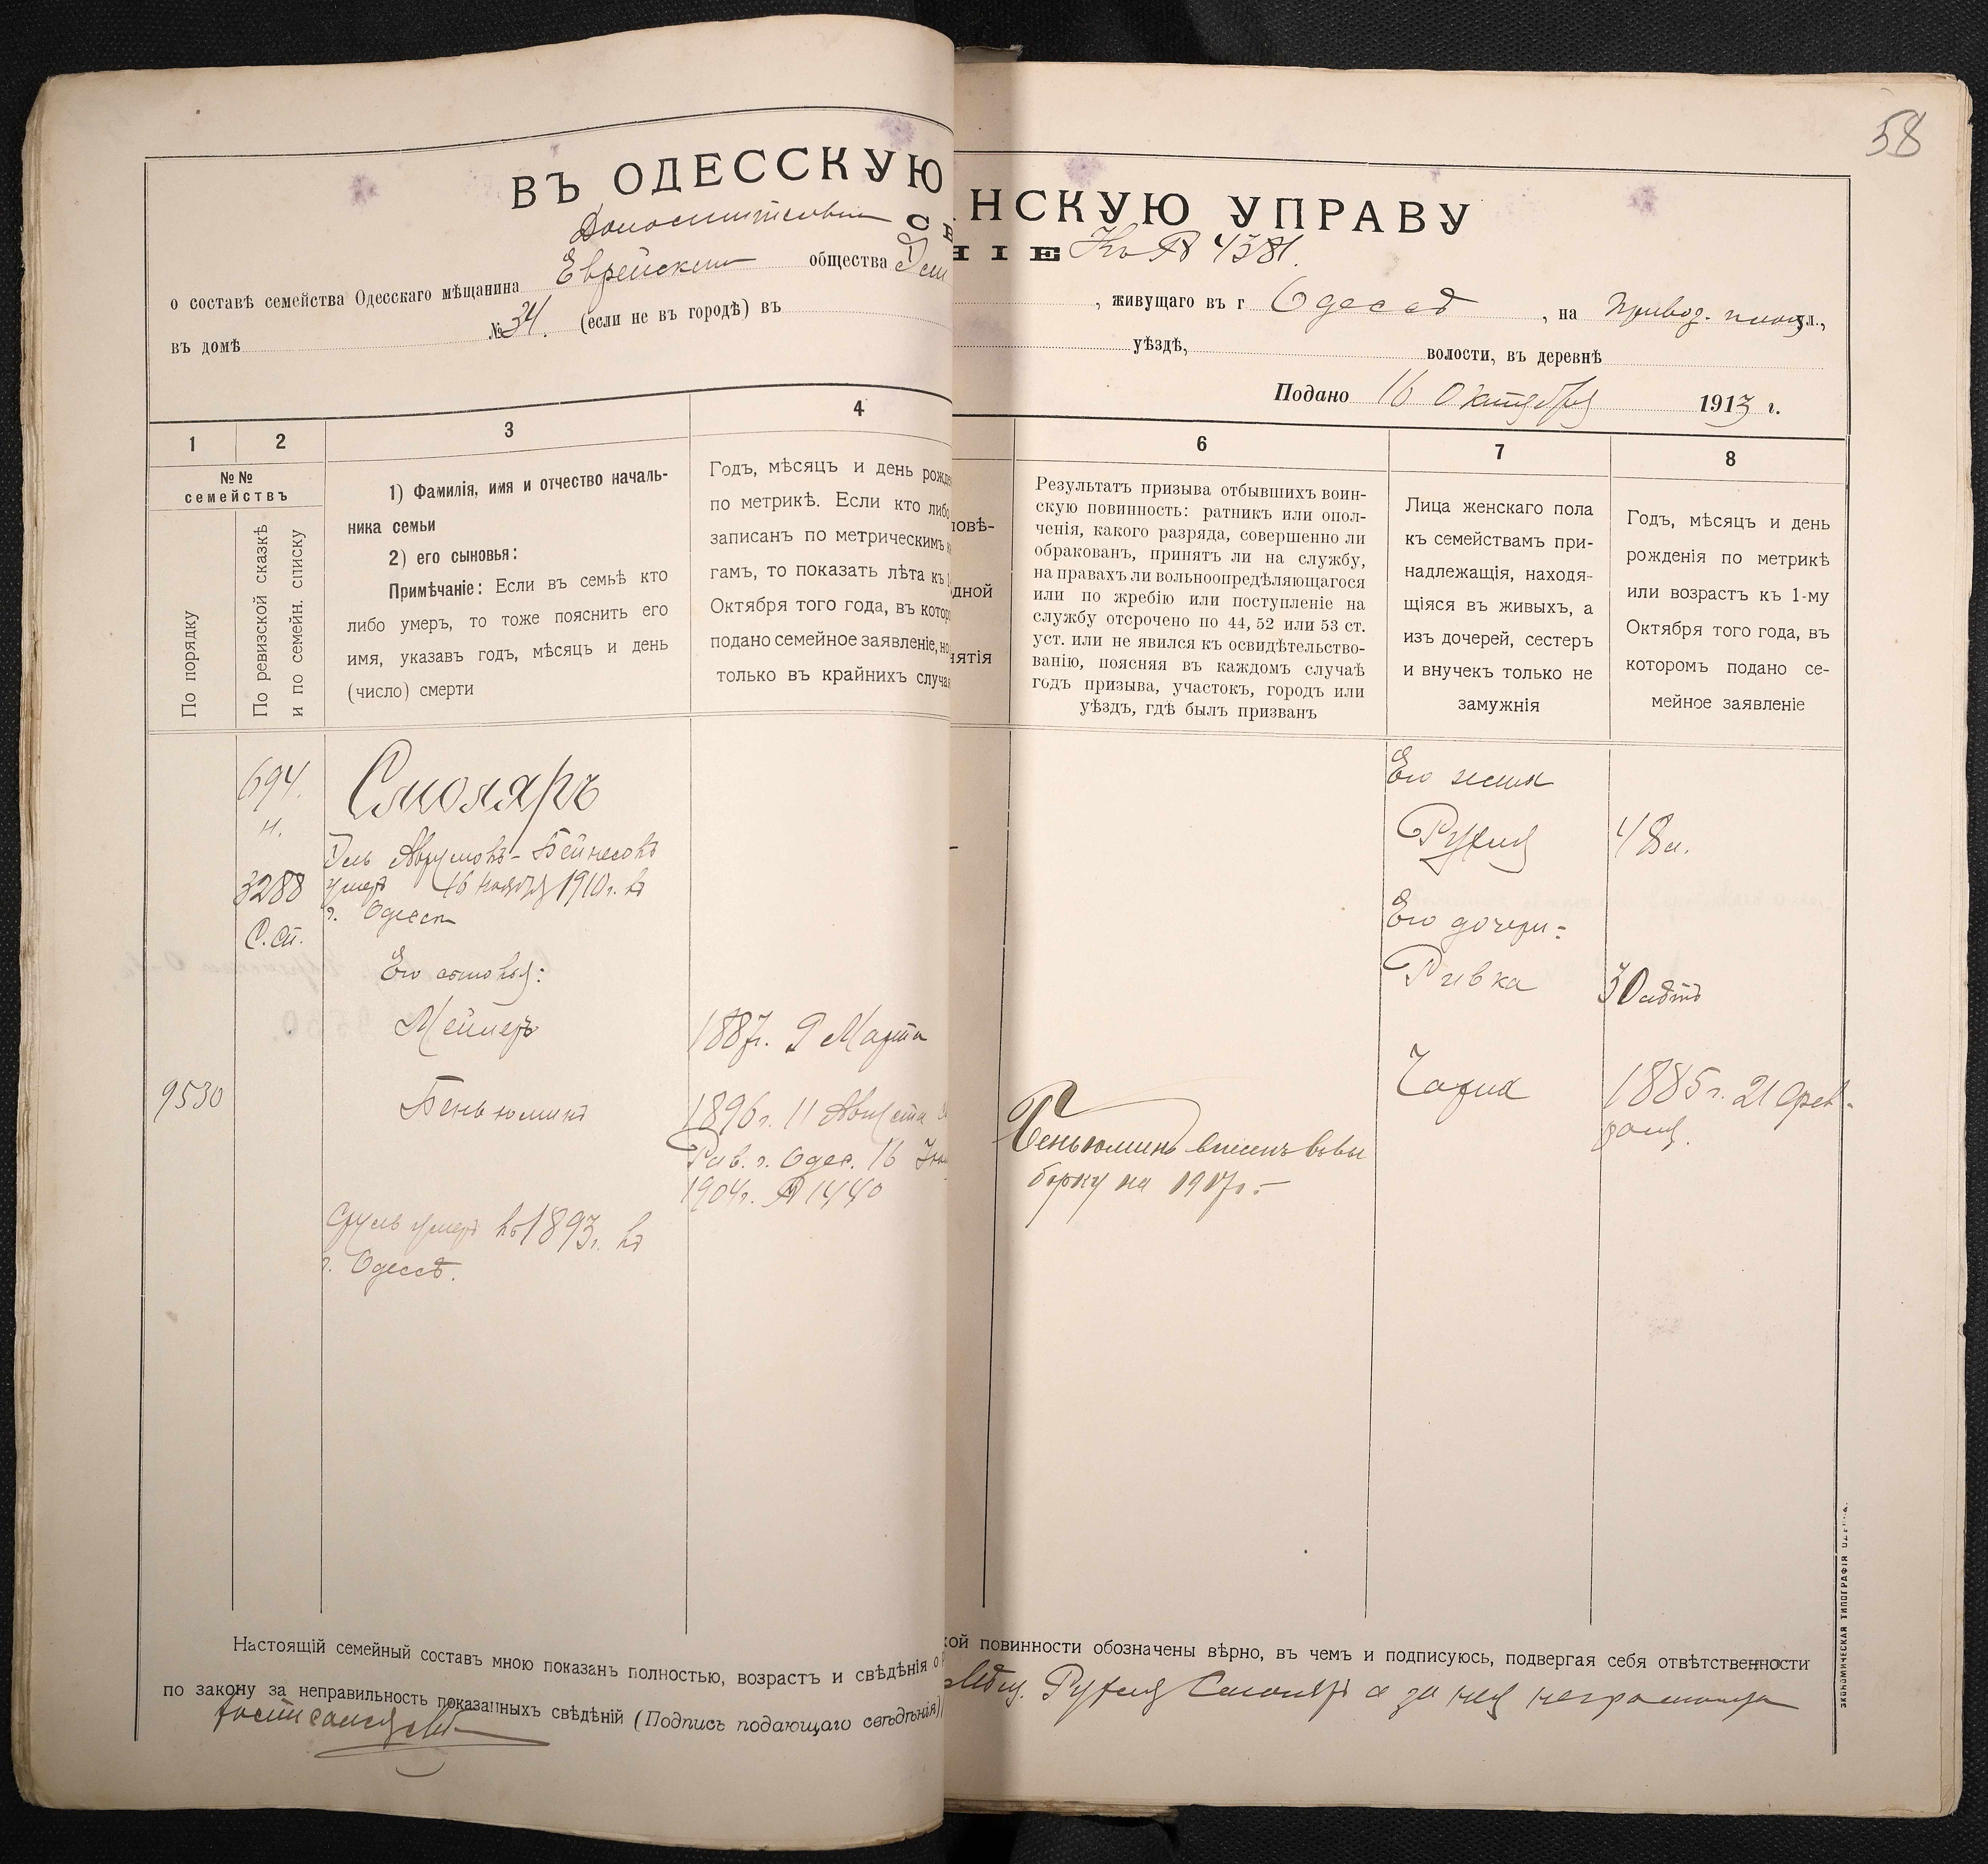 58
ВЪ ОДЕССКУЮ
НСКУЮ УПРАВУ
Дополнительный
НІЕ Къ № 4381.
о составѣ семейства Одесскаго мѣщанина Еврейскаго общества
, живущаго въ г Одессѣ, на Привоз. площ ул.,
въ домѣ № 34. (если не въ городѣ) въ
уѣздѣ, волости, въ деревнѣ
Подано 16 Октября 1913 г.
1
2
3
4
6
7
8
№№ семействъ
По порядку
По ревизской сказкѣ
и по семейн. списку
1) Фамилія, имя и отчество началь-
ника семьи
2) его сыновья:
Примѣчаніе: Если въ семьѣ кто
либо умеръ, то тоже пояснить его
имя, указавъ годъ, мѣсяцъ и день
(число) смерти
Годъ, мѣсяцъ и день рожд
по метрикѣ. Если кто либо
записанъ по метрическимъ к
гамъ, то показать лѣта къ 1
Октября того года, въ котор
подано семейное заявленіе, но
только въ крайнихъ случа
овѣ-
дной
нятія
Результатъ призыва отбывшихъ воин-
скую повинность: ратникъ или опол-
ченія, какого разряда, совершенно ли
обракованъ, принятъ ли на службу,
на правахъ ли вольноопредѣляющагося
или по жребію или поступленіе на
службу отсрочено по 44, 52 или 53 ст.
уст. или не явился къ освидѣтельство-
ванію, поясняя въ каждомъ случаѣ
годъ призыва, участокъ, городъ или
уѣздъ, гдѣ былъ призванъ
Лица женскаго пола
къ семействамъ при-
надлежащія, находя-
щіяся въ живыхъ, а
изъ дочерей, сестеръ
и внучекъ только не
замужнія
Годъ, мѣсяцъ и день
рожденія по метрикѣ
или возрастъ къ 1-му
Октября того года, въ
которомъ подано се-
мейное заявленіе
694.
н.
3288
С. сп.
9530
Смоляръ
Іель Аврумовъ-Бейнесовъ
умеръ 16 ноября 1910 г. въ
г. Одессѣ
Его сыновья:
Мейлеръ
1887 г. 9 Марта
Беньюминъ
1896 г. 11 Августа
Рав. г. Одес. 16
1904 г. № 1440
Сруль умеръ въ 1893 г. въ
г. Одессѣ.
Беньюминъ внесенъ въ вы
борку на 1917 г. –
Его жена
Рухля
48 л.
Его дочери:
Ривка
30 лѣтъ
Хафна
1885 г. 21 Фев-
раля.
Настоящій семейный составъ мною показанъ полностью, возрастъ и свѣдѣнія о
кой повинности обозначены вѣрно, въ чемъ и подписуюсь, подвергая себя отвѣтственности
по закону за неправильность показанныхъ свѣдѣній (Подпись подающаго свѣдѣнія)
Рухля Смоляръ а за нея неграмотную
росписался
ЭКОНОМИЧЕСКАЯ ТИПОГРАФІЯ ОДЕССА.